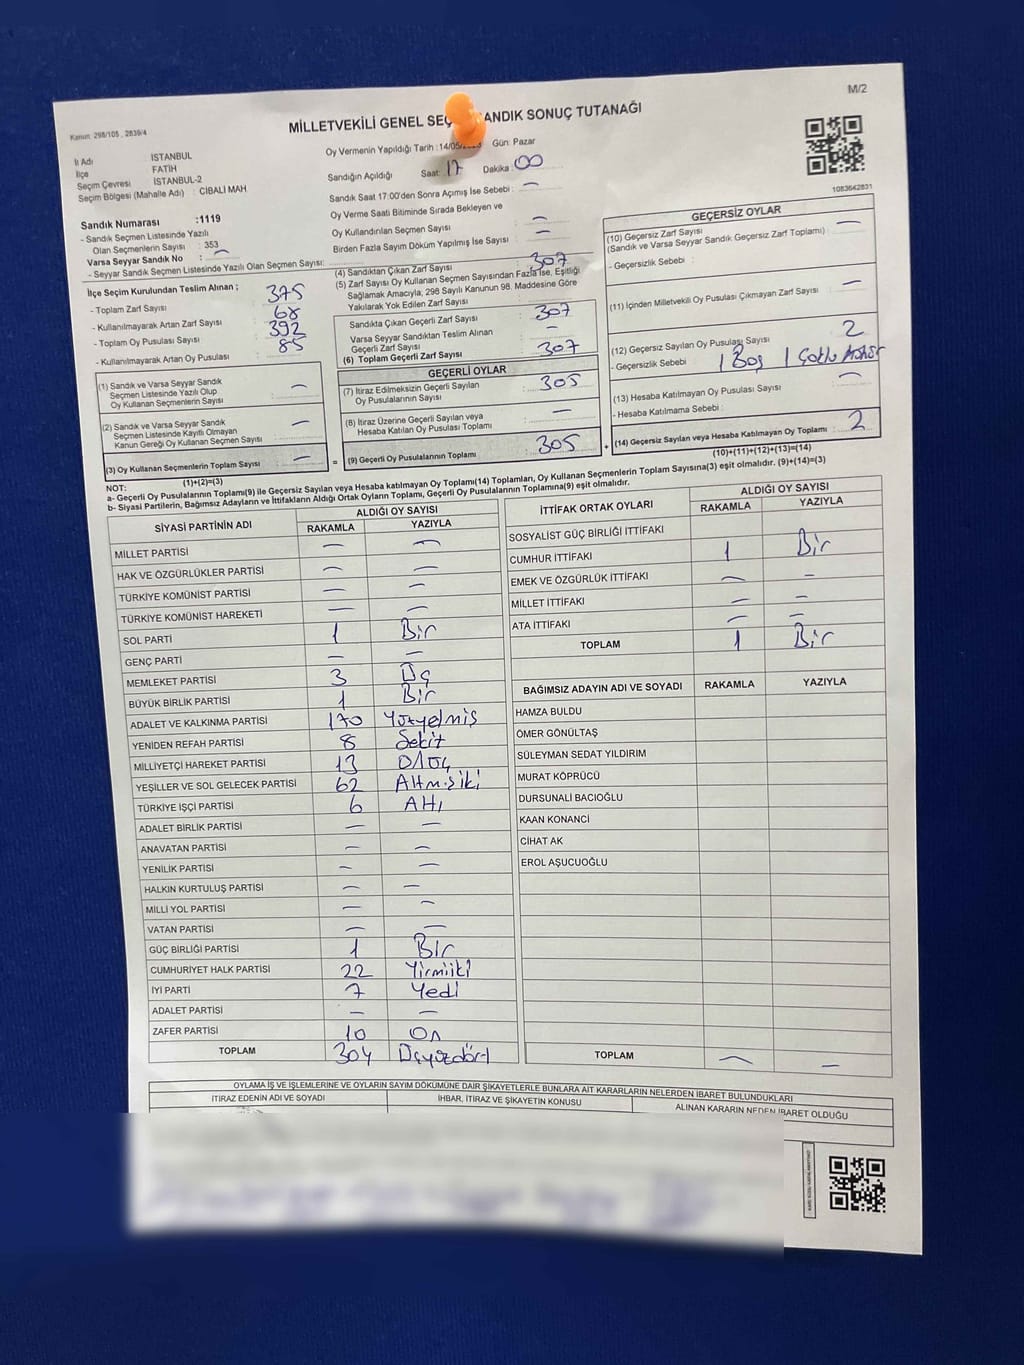 M/2
Kanun: 298/105 , 2839/4
MİLLETVEKİLİ GENEL SEÇ ANDIK SONUÇ TUTANAĞI
İl Adı : İSTANBUL
İlçe : FATİH
Seçim Çevresi : İSTANBUL-2
Seçim Bölgesi (Mahalle Adı) : CİBALİ MAH
Oy Vermenin Yapıldığı Tarih :14/05/ Gün: Pazar
Sandığın Açıldığı Saat: 17 Dakika : 00
Sandık Saat 17:00'den Sonra Açımış İse Sebebi : —
Oy Verme Saati Bitiminde Sırada Bekleyen ve
Oy Kullandırılan Seçmen Sayısı : —
Birden Fazla Sayım Döküm Yapılmış İse Sayısı : —
1083642831
Sandık Numarası :1119
- Sandık Seçmen Listesinde Yazılı
Olan Seçmenlerin Sayısı : 353
Varsa Seyyar Sandık No : —
- Seyyar Sandık Seçmen Listesinde Yazılı Olan Seçmen Sayısı:
İlçe Seçim Kurulundan Teslim Alınan ;
- Toplam Zarf Sayısı : 375
- Kullanılmayarak Artan Zarf Sayısı : 68
- Toplam Oy Pusulası Sayısı : 392
- Kullanılmayarak Artan Oy Pusulası : 85
(1) Sandık ve Varsa Seyyar Sandık
Seçmen Listesinde Yazılı Olup
Oy Kullanan Seçmenlerin Sayısı —
(2) Sandık ve Varsa Seyyar Sandık
Seçmen Listesinde Kayıtlı Olmayan
Kanun Gereği Oy Kullanan Seçmen Sayısı —
(3) Oy Kullanan Seçmenlerin Toplam Sayısı —
(1)+(2)=(3)
(4) Sandıktan Çıkan Zarf Sayısı : 307
(5) Zarf Sayısı Oy Kullanan Seçmen Sayısından Fazla İse, Eşitliği
Sağlamak Amacıyla, 298 Sayılı Kanunun 98. Maddesine Göre
Yakılarak Yok Edilen Zarf Sayısı :
Sandıkta Çıkan Geçerli Zarf Sayısı : 307
Varsa Seyyar Sandıktan Teslim Alınan
Geçerli Zarf Sayısı : —
(6) Toplam Geçerli Zarf Sayısı : 307
GEÇERLİ OYLAR
(7) İtiraz Edilmeksizin Geçerli Sayılan
Oy Pusulalarının Sayısı : 305
(8) İtiraz Üzerine Geçerli Sayılan veya
Hesaba Katılan Oy Pusulası Toplamı : —
= (9) Geçerli Oy Pusulalarının Toplamı : 305
GEÇERSİZ OYLAR
(10) Geçersiz Zarf Sayısı : —
(Sandık ve Varsa Seyyar Sandık Geçersiz Zarf Toplamı)
- Geçersizlik Sebebi :
(11) İçinden Milletvekili Oy Pusulası Çıkmayan Zarf Sayısı : —
(12) Geçersiz Sayılan Oy Pusulası Sayısı : 2
- Geçersizlik Sebebi : 1 Boş 1 Çoklu
(13) Hesaba Katılmayan Oy Pusulası Sayısı : —
- Hesaba Katılmama Sebebi :
+ (14) Geçersiz Sayılan veya Hesaba Katılmayan Oy Toplamı : 2
(10)+(11)+(12)+(13)=(14)
NOT:
a- Geçerli Oy Pusulalarının Toplamı(9) ile Geçersiz Sayılan veya Hesaba katılmayan Oy Toplamı(14) Toplamları, Oy Kullanan Seçmenlerin Toplam Sayısına(3) eşit olmalıdır. (9)+(14)=(3)
b- Siyasi Partilerin, Bağımsız Adayların ve İttifakların Aldığı Ortak Oyların Toplamı, Geçerli Oy Pusulalarının Toplamına(9) eşit olmalıdır.
SİYASİ PARTİNİN ADI ALDIĞI OY SAYISI
RAKAMLA YAZIYLA
MİLLET PARTİSİ — —
HAK VE ÖZGÜRLÜKLER PARTİSİ — —
TÜRKİYE KOMÜNİST PARTİSİ — —
TÜRKİYE KOMÜNİST HAREKETİ — —
SOL PARTİ 1 Bir
GENÇ PARTİ — —
MEMLEKET PARTİSİ 3 Üç
BÜYÜK BİRLİK PARTİSİ 1 Bir
ADALET VE KALKINMA PARTİSİ 170 Yüzyetmiş
YENİDEN REFAH PARTİSİ 8 Sekiz
MİLLİYETÇİ HAREKET PARTİSİ 13 Onüç
YEŞİLLER VE SOL GELECEK PARTİSİ 62 Altmışiki
TÜRKİYE İŞÇİ PARTİSİ 6 Altı
ADALET BİRLİK PARTİSİ — —
ANAVATAN PARTİSİ — —
YENİLİK PARTİSİ — —
HALKIN KURTULUŞ PARTİSİ — —
MİLLİ YOL PARTİSİ — —
VATAN PARTİSİ — —
GÜÇ BİRLİĞİ PARTİSİ 1 Bir
CUMHURİYET HALK PARTİSİ 22 Yirmiiki
İYİ PARTİ 7 Yedi
ADALET PARTİSİ — —
ZAFER PARTİSİ 10 On
TOPLAM 304 Üçyüzdört
İTTİFAK ORTAK OYLARI ALDIĞI OY SAYISI
RAKAMLA YAZIYLA
SOSYALİST GÜÇ BİRLİĞİ İTTİFAKI
CUMHUR İTTİFAKI 1 Bir
EMEK VE ÖZGÜRLÜK İTTİFAKI — —
MİLLET İTTİFAKI — —
ATA İTTİFAKI — —
TOPLAM 1 Bir
BAĞIMSIZ ADAYIN ADI VE SOYADI RAKAMLA YAZIYLA
HAMZA BULDU
ÖMER GÖNÜLTAŞ
SÜLEYMAN SEDAT YILDIRIM
MURAT KÖPRÜCÜ
DURSUNALİ BACIOĞLU
KAAN KONANCİ
CİHAT AK
EROL AŞUCUOĞLU
TOPLAM — —
OYLAMA İŞ VE İŞLEMLERİNE VE OYLARIN SAYIM DÖKÜMÜNE DAİR ŞİKAYETLERLE BUNLARA AİT KARARLARIN NELERDEN İBARET BULUNDUKLARI
İTİRAZ EDENİN ADI VE SOYADI İHBAR, İTİRAZ VE ŞİKAYETİN KONUSU ALINAN KARARIN NEDEN İBARET OLDUĞU